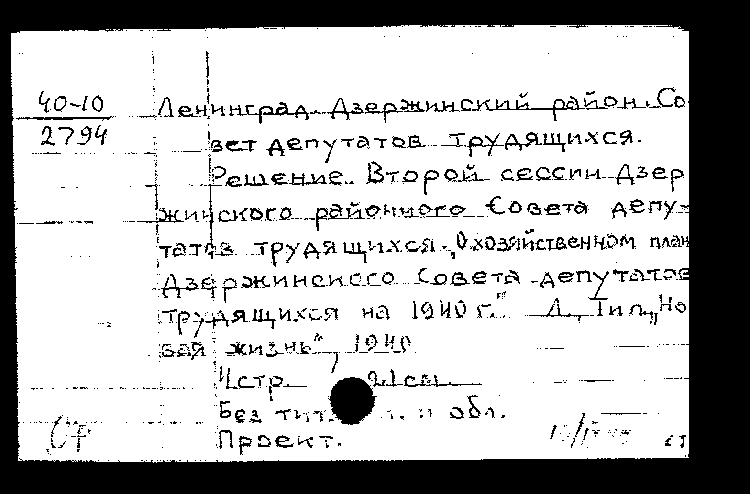 40-10
2794
Ленинград. Дзержинский район. Со
вет депутатов трудящихся.
Решение Второй сессии Дзер
жинского районного Совета депу-
татов трудящихся „О хозяйственном план
Дзержинского Совета депутатов
трудящихся на 1940 г." Л., Тип. „Но
вая жизнь", 1940
стр. 21 см.
Без тит. л. и обл.
Проект.